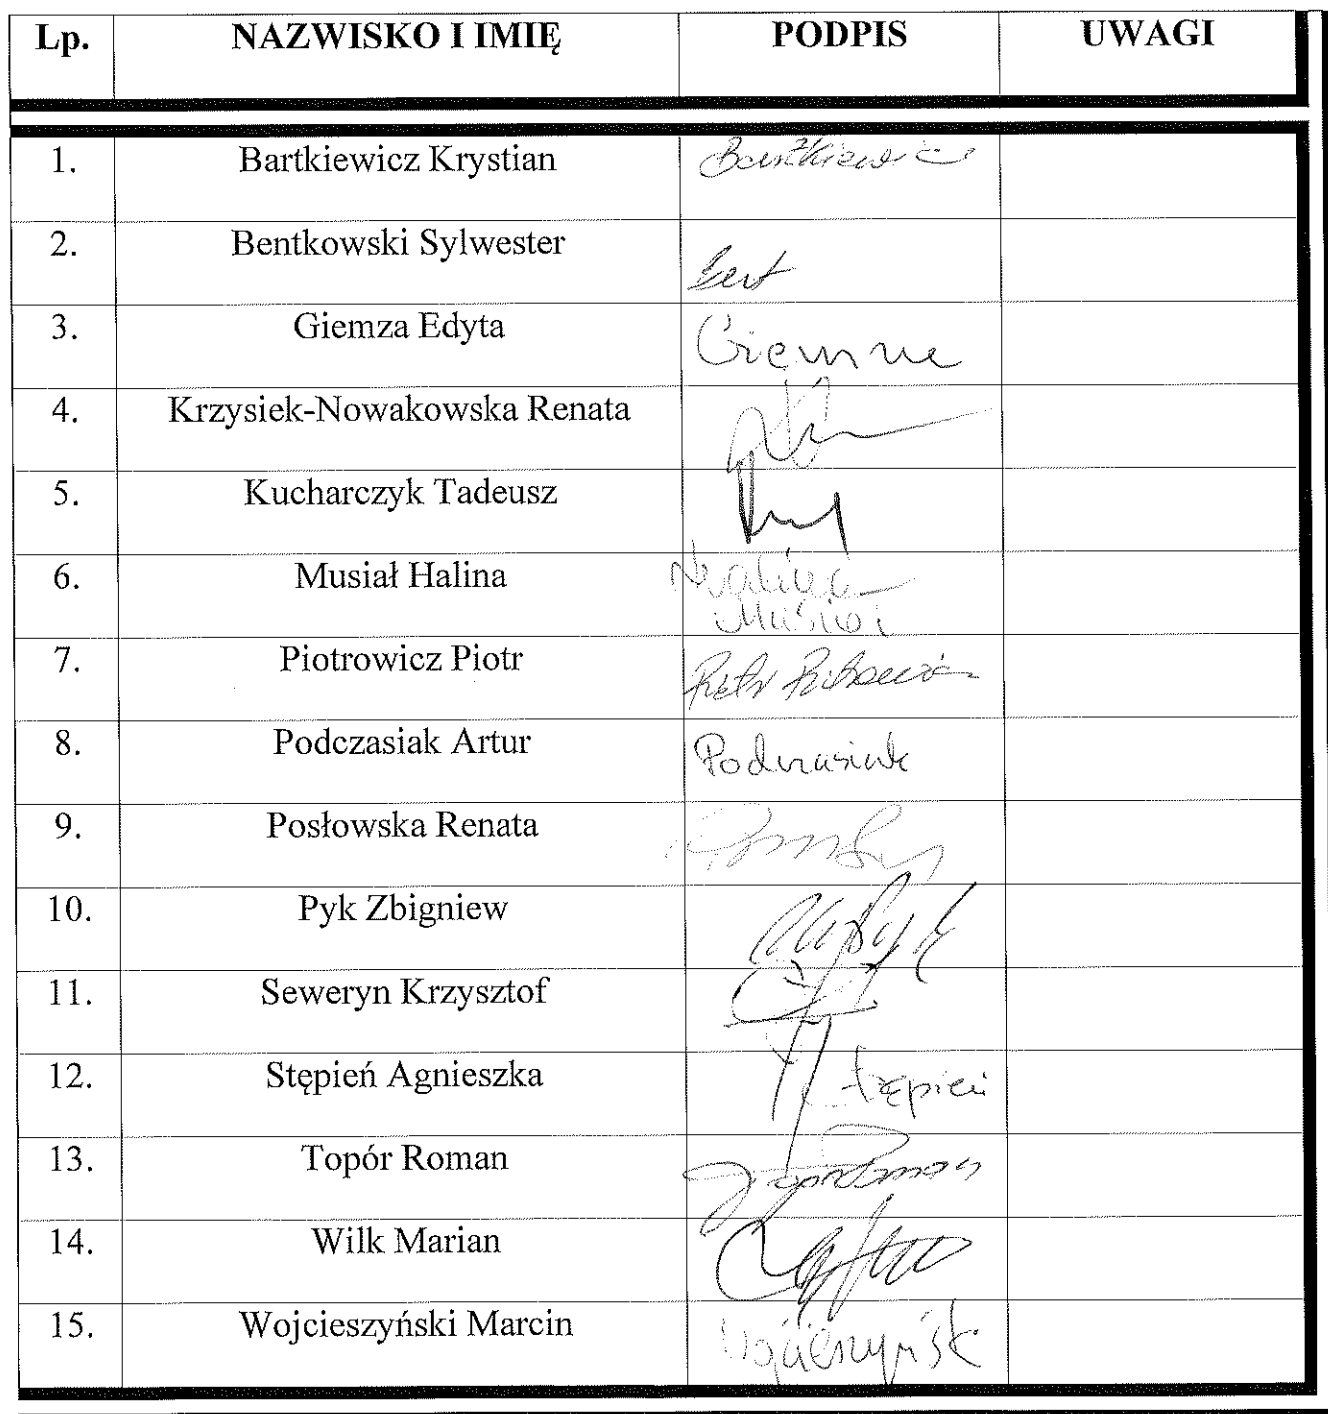 Lp. NAZWISKO I IMIĘ PODPIS UWAGI
1. Bartkiewicz Krystian Bartkiewicz
2. Bentkowski Sylwester Bent
3. Giemza Edyta Giemza
4. Krzysiek-Nowakowska Renata
5. Kucharczyk Tadeusz
6. Musiał Halina Halina
Musiał
7. Piotrowicz Piotr Piotr Piotrowicz
8. Podczasiak Artur Podczasiak
9. Posłowska Renata
10. Pyk Zbigniew
11. Seweryn Krzysztof
12. Stępień Agnieszka Stępień
13. Topór Roman
14. Wilk Marian
15. Wojcieszyński Marcin Wojcieszyński